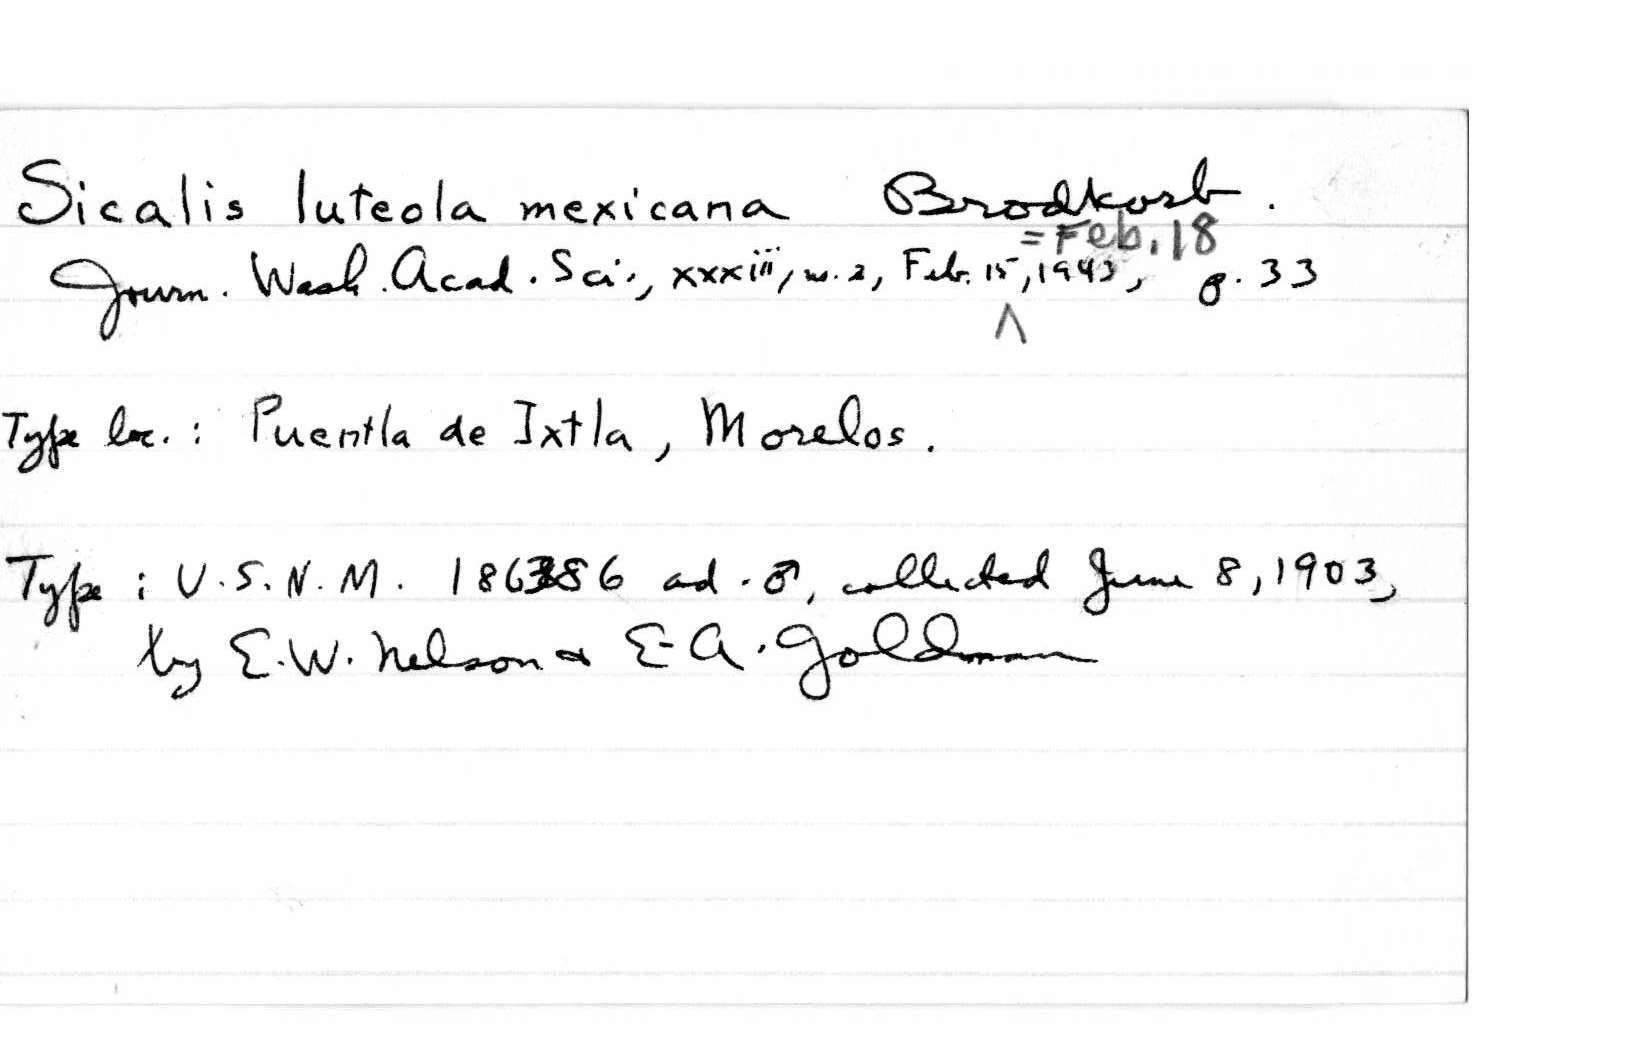 Sicalis luteola mexicana Brodkorb.
= Feb. 18
Journ. Wash. Acad. Sci., xxxiii, no. 2, Feb. 15, 1943, p. 33
^
Type loc. : Puentla de Ixtla, Morelos.
Type : U.S.N.M. 186386 ad. ♂, collected June 8, 1903,
by E.W. Nelson & E.A. Goldman